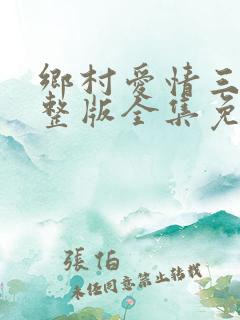 鄉村愛情三
整版全集免
張伯
未经同意禁止转载